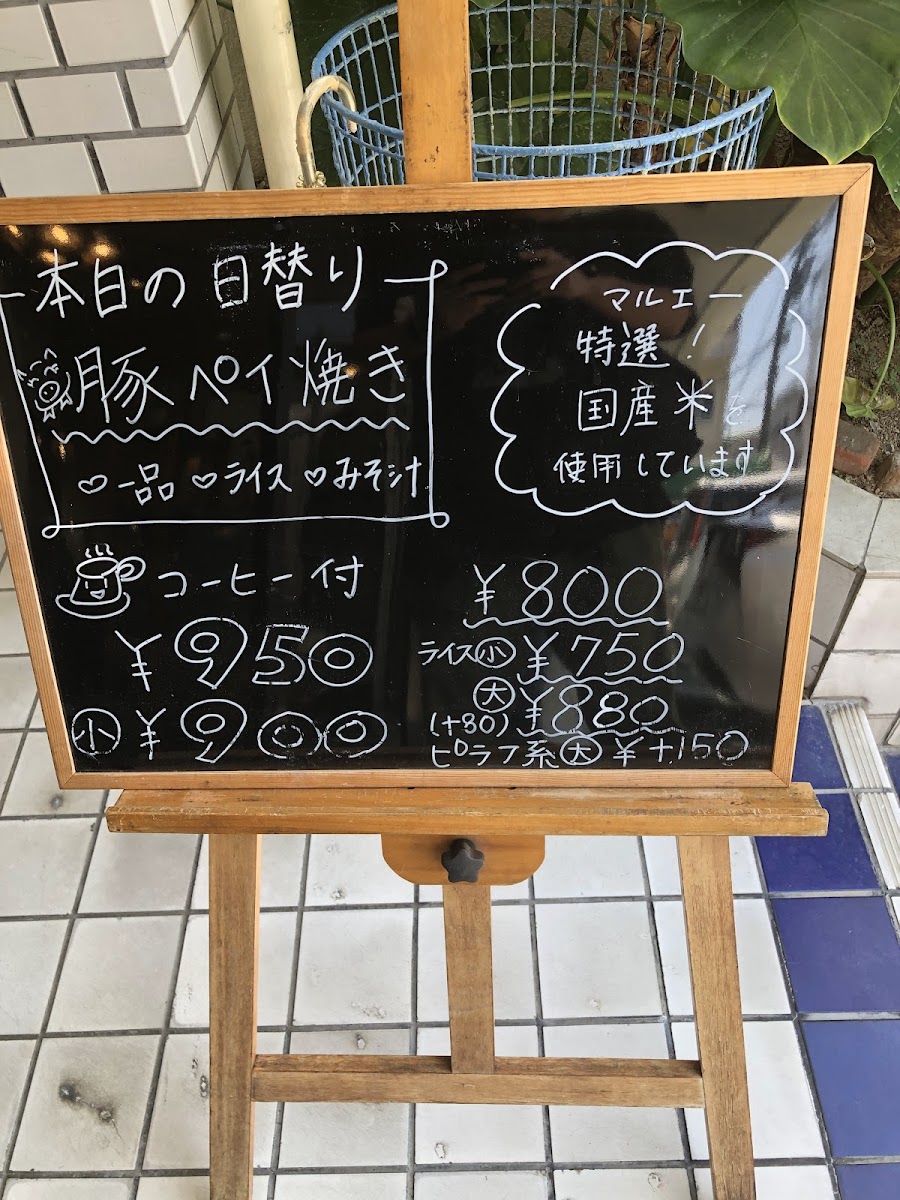 本日の日替り
豚ペイ焼き
♡一品 ♡ライス ♡みそ汁
マルエー
特選!
国産米を
使用しています
コーヒー付
¥950
小 ¥900
¥800
ライス小 ¥750
大 ¥880
(+80)
ピラフ系大 ¥+150